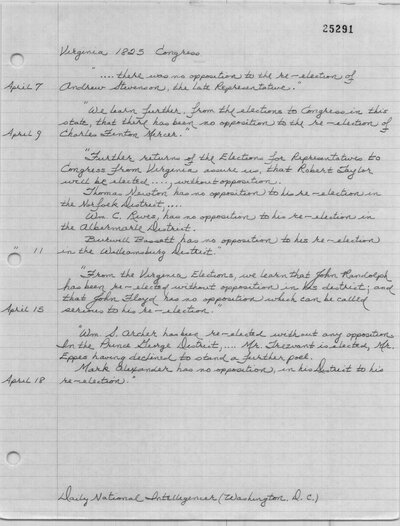 25291
Virginia 1825 Congress
".... there was no opposition to the re-election of
April 7 Andrew Stevenson, the late Representative."
"We learn further, from the elections to Congress in this
state, that there has been no opposition to the re-election of
April 9 Charles Fenton Mercer."
"Further returns of the Elections for Representatives to
Congress from Virginia assure us, that Robert Taylor
will be elected ...., without opposition.
Thomas Newton has no opposition to his re-election in
the Norfolk District, ....
Wm. C. Rives, has no opposition to his re-election in
the Albermarle District.
Burwell Bassett has no opposition to his re-election
" 11 in the Williamsburg District."
"From the Virginia Elections, we learn that John Randolph
has been re-elected without opposition in his district; and
that John Floyd has no opposition which can be called
April 15 serious to his re-election."
"Wm. S. Archer has been re-elected without any opposition
In the Prince George District, .... Mr. Trezvant is elected, Mr.
Eppes having declined to stand a further poll.
Mark Alexander has no opposition, in his District to his
April 18 re-election."
Daily National Intelligencer (Washington, D.C.)